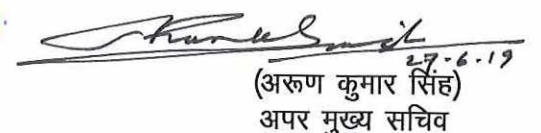 27.6.19
(अरूण कुमार सिंह)
अपर मुख्य सचिव